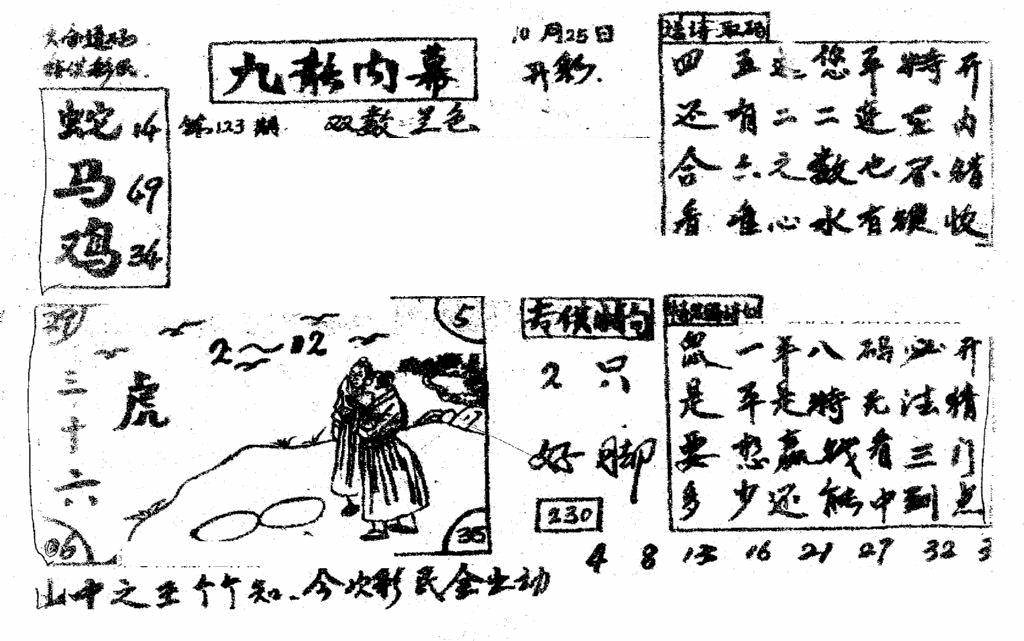 10月25日
开彩.
九龙内幕
第123期 双数 兰色
蛇14
马49
鸡34
送诗取码
四五 您平特开
还有二二连 内
合六元数也不错
看准心水有 收
29
5
2~02
虎
三十六
06
35
专供 句
2只
好脚
230
鼠一年八码必开
是平是特无法猜
要想赢钱看三门
多少还能中到点
4 8 13 16 21 27 32 3
山中之王个个知.今次彩民全出动